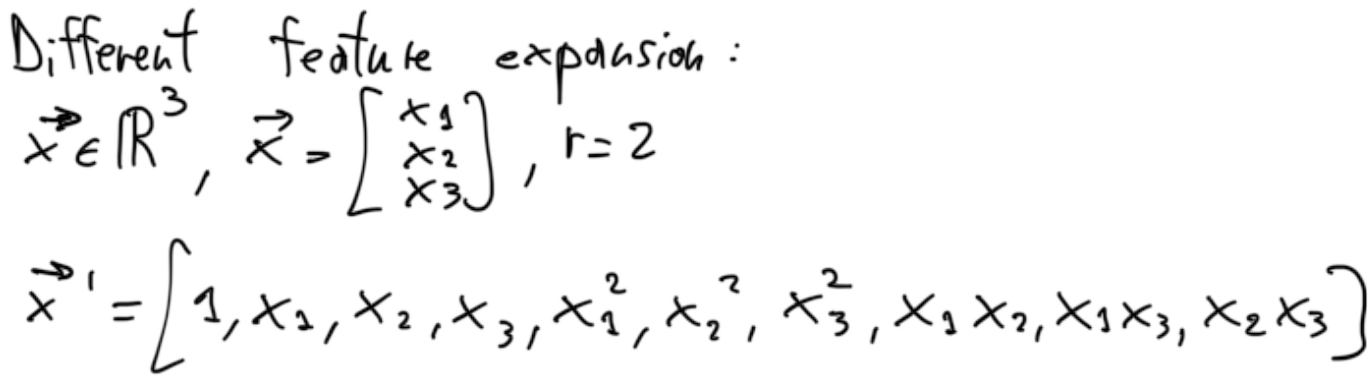 Different feature expansion:
$\vec{x} \in \mathbb{R}^3, \vec{x} = \begin{bmatrix} x_1 \\ x_2 \\ x_3 \end{bmatrix}, r = 2$
$\vec{x}' = [1, x_1, x_2, x_3, x_1^2, x_2^2, x_3^2, x_1 x_2, x_1 x_3, x_2 x_3]$